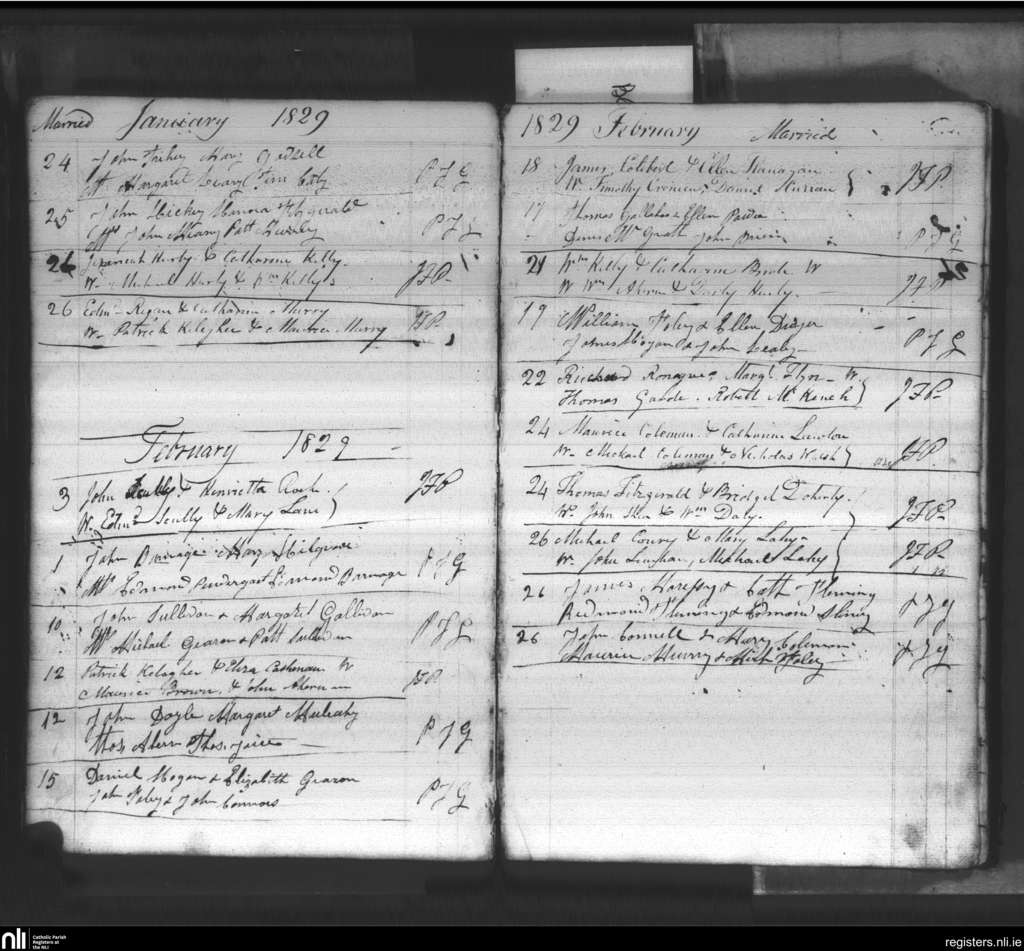 Married January 1829
24 John Fahey Mary
Margaret Leary
25 John Hickey Hanora Fitzgerald
Ws John Meany Patt
P J G
26 Jeremiah Hurly & Catharine Kelly.
Ws Michael Hurly & Wm Kelly
JFP
26 Edmd Regan & Catharine Murry
Ws Patrick Kelegher & Maurice Murry
JFP
February 1829
3 John Scully & Henrietta Roch
Ws Edmd Scully & Mary Lane
JFP
1 John Mary
Ws Edmond Pendergast Edmond
P J G
10 John Sullivan & Margaret Gallivan
Ws Michael Gearon & Patt Sullivan
P J G
12 Patrick Kelagher & Eliza Cashman W
Maurice Brown, & John Ahern
JFP
12 John Doyle Margaret Mulcahy
Thos Ahern Thos Joice
P J G
15 Daniel Hogan & Elizabeth Gearon
John Foley & John Connors
P J G
1829 February Married
18 James Colibert & Ellen Flanagan
Ws Timothy Cronien, Daniel
JFP
17 Thomas Gallahes & Ellen Power
Denis McGrath John
P J G
21 Wm Kelly & Catharine Bride W
W Wm Ahern & Darby Hurly.
JFP
19 William Foley & Ellen Dwyer
James Hogan & John Leahy
P J G
22 Richard Ronayne, Margt Flyn W.
Thomas Garde. Robert McKeneh
JFP
24 Maurice Coleman & Catharine Lawlor
Ws Michael Coleman & Nicholas Walsh
JFP
24 Thomas Fitzgerald & Bridget Doherty.
Ws John Shea & Wm Daly.
JFP
26 Michael Conry & Mary Lahy
Ws John Linehan, Michael Lahy
JFP
26 James & Cath Fleming
Redmond Fleming & Edmond
P J G
26 John Connell & Mary Coleman
Maurice Murry & Mich Foley
P J G
nli
Catholic Parish
Registers at
the NLI
registers.nli.ie